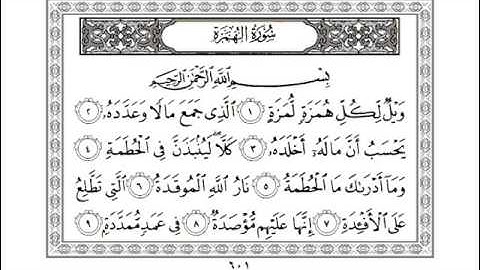 سُورَةُ الْهُمَزَةِ
بِسْمِ اللَّهِ الرَّحْمَٰنِ الرَّحِيمِ
وَيْلٌ لِّكُلِّ هُمَزَةٍ لُّمَزَةٍ ١ الَّذِي جَمَعَ مَالًا وَعَدَّدَهُۥ ٢
يَحْسَبُ أَنَّ مَالَهُۥٓ أَخْلَدَهُۥ ٣ كَلَّا ۖ لَيُنۢبَذَنَّ فِي الْحُطَمَةِ ٤
وَمَآ أَدْرَىٰكَ مَا الْحُطَمَةُ ٥ نَارُ اللَّهِ الْمُوقَدَةُ ٦ الَّتِي تَطَّلِعُ
عَلَى الْأَفْـِٔدَةِ ٧ إِنَّهَا عَلَيْهِم مُّؤْصَدَةٌ ٨ فِي عَمَدٍ مُّمَدَّدَةٍۭ ٩
٦٠١